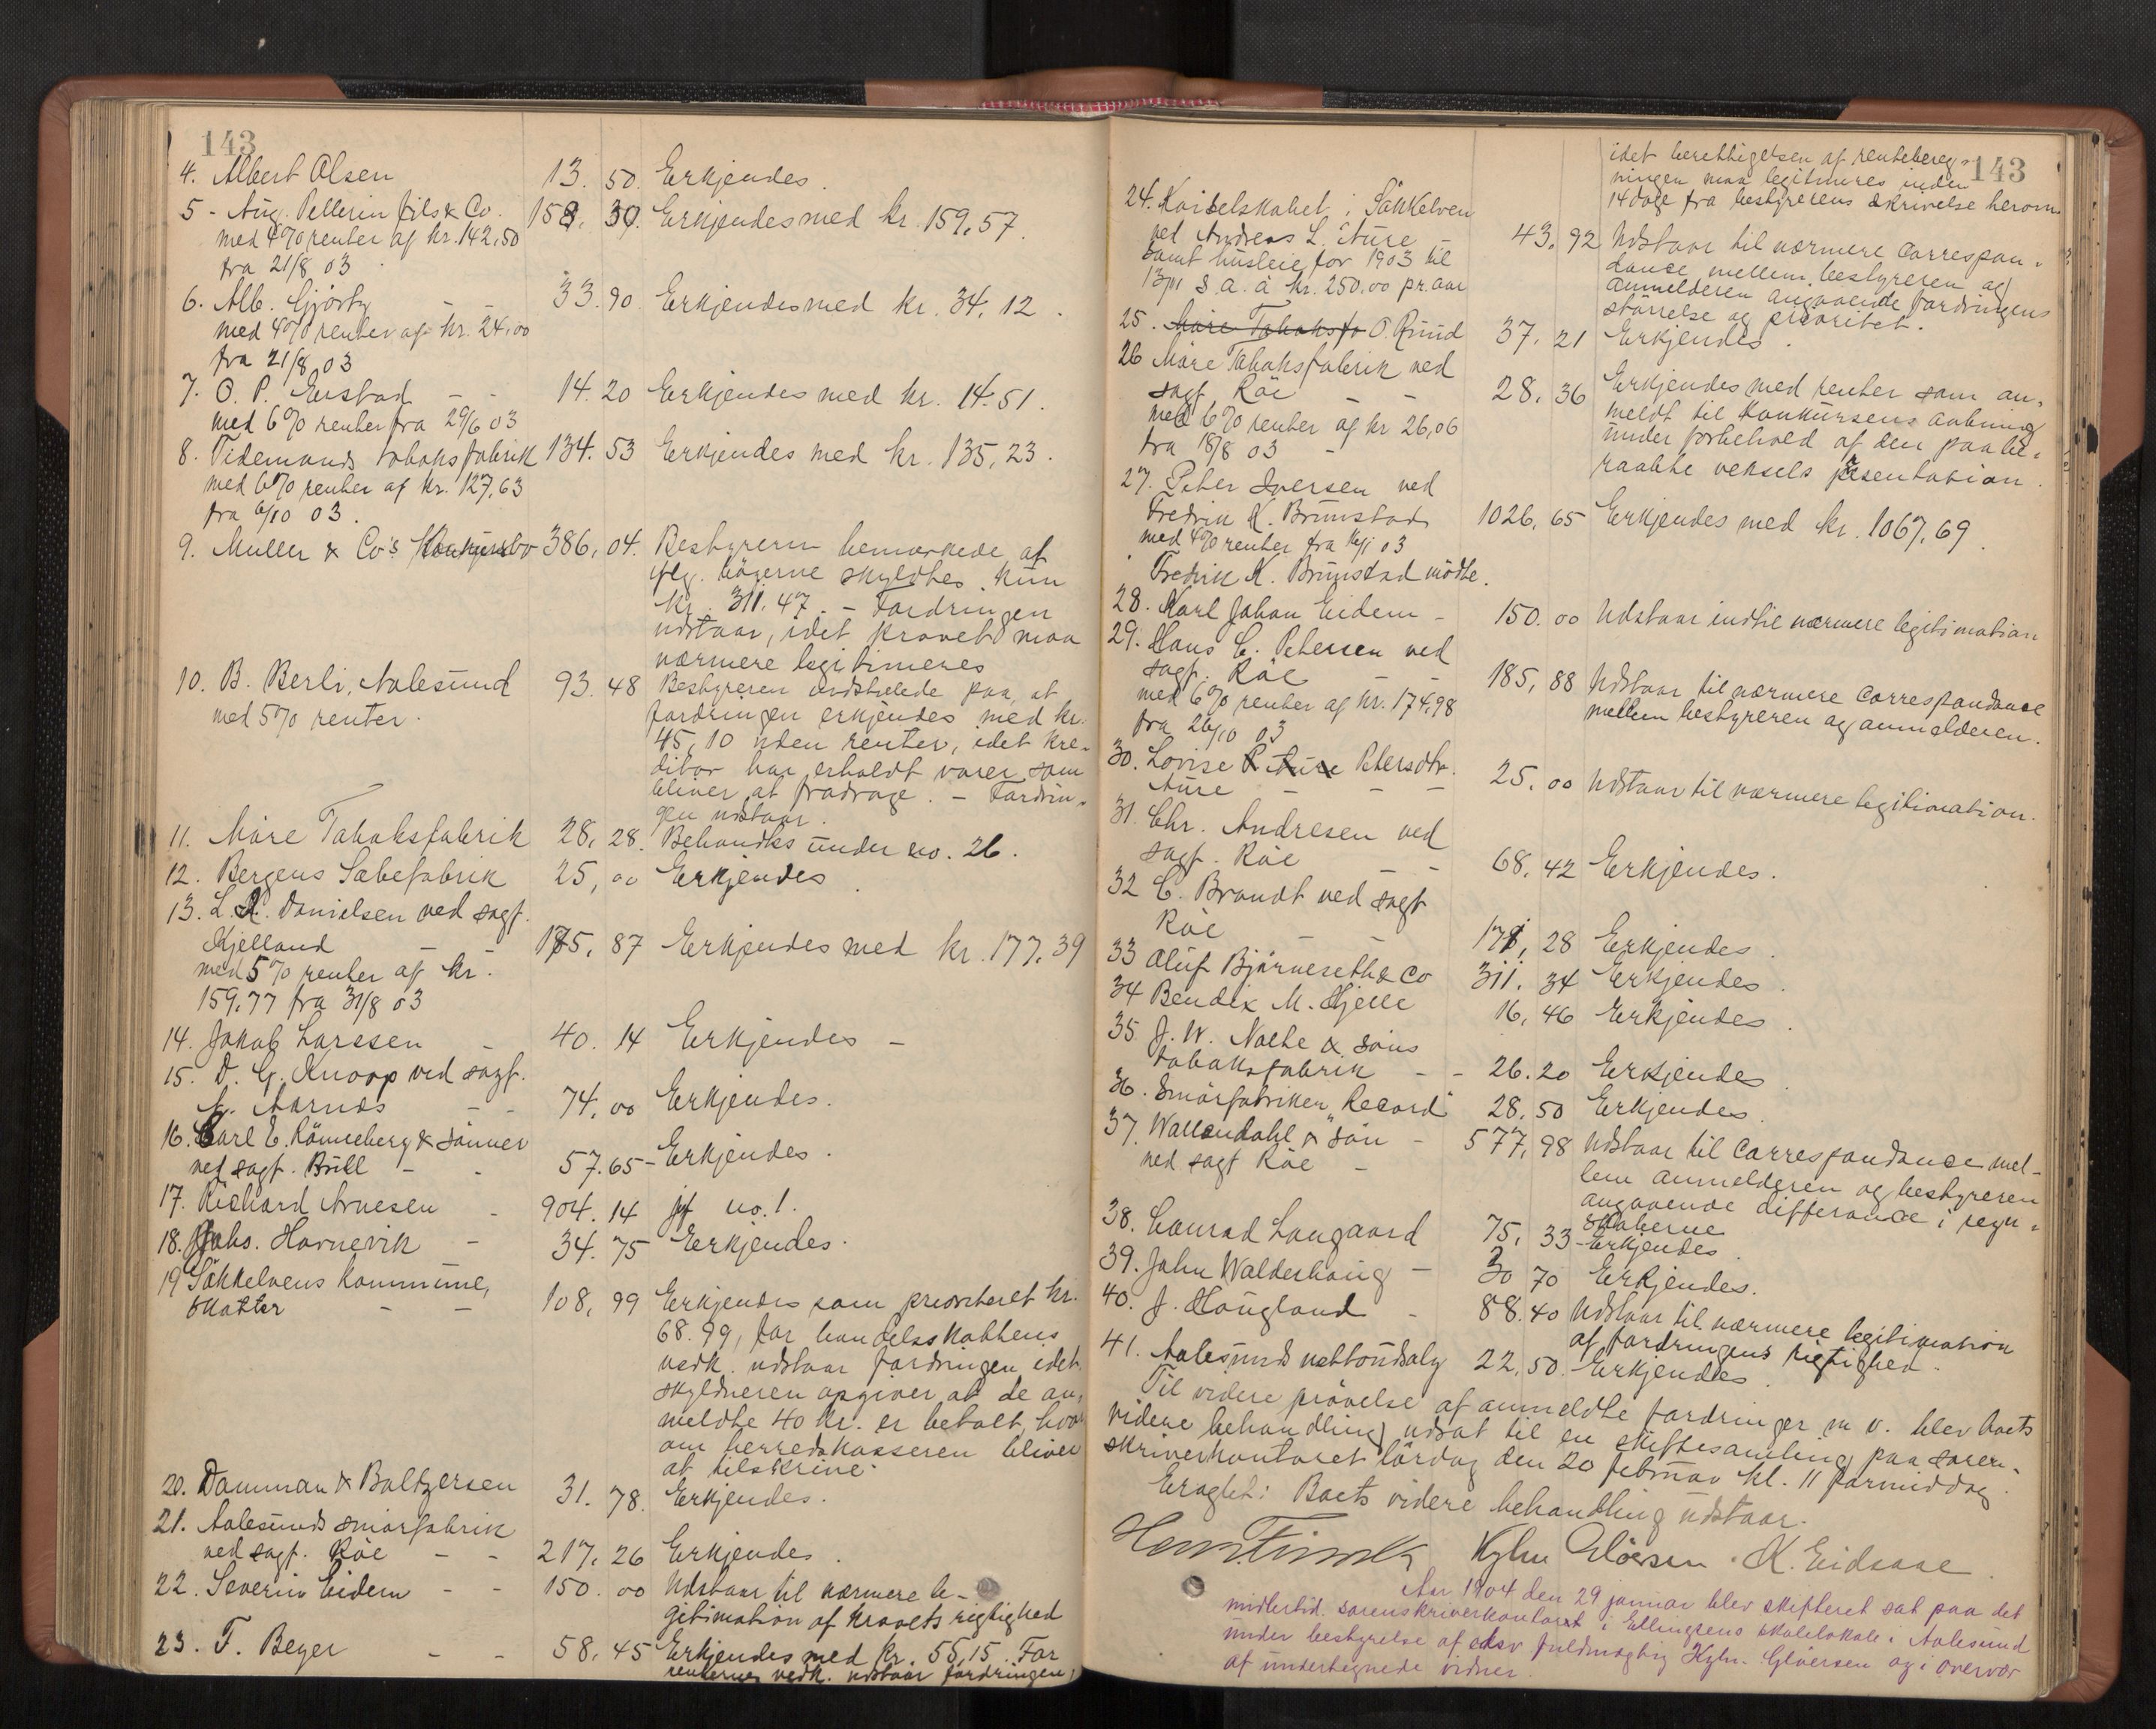 143
4. Albert Olsen 13. 50. Erkjendes.
5 - Aug. Pellerin fils & Co. 158. 30. Erkjendes med kr. 159,57.
med 4% renter af kr. 142,50
fra 21/8 03
6. Alb. Gjörtz - - 33.90 Erkjendes med kr. 34,12.
med 4% renter af kr. 24,00
fra 21/8 03
7. O. P. Enstad - - 14.20 Erkjendes med kr. 14.51.
med 6% renter fra 29/6 03
8. Tidemands tobaksfabrik 134. 53 Erkjendes med kr. 135,23.
med 6% renter af kr. 127,63
fra 6/10 03.
9. Muller & Co's Konkursbo 386, 04. Bestyreren bemærkede at
iflg. bögerne skyldtes kun
kr. 311.47. - Fordringen
udstaar, idet kravet maa
nærmere legitimeres
10. B. Berli, Aalesund 93. 48 Bestyreren indstillede paa, at
med 5% renter. fordringen erkjendes med kr.
45,10 uden renter, idet kre-
ditor har erholdt varer som
bliver at fradrage. - Fordrin-
gen udstaar.
11. Möre Tobaksfabrik 28, 28. Behandles under no. 26.
12. Bergens Sæbefabrik 25, 00 Erkjendes.
13. L. K. Danielsen ved sagf.
Kjelland - - 175, 87 Erkjendes med kr. 177,39
med 5% renter af kr.
159,77 fra 31/8 03
14. Jakob Larssen - 40. 14 Erkjendes -
15. D. G. Knoop ved sagf.
A. Aarnæs - - 74, 00 Erkjendes.
16. Carl E. Rönneberg & Sönner
ved sagf. Bull - - 57.65 - Erkjendes.
17. Richard Arnesen - 904. 14 jf no. 1.
18. Johs. Hornevik - 34. 75 Erkjendes.
19 Sökkelvens kommune,
skatter - - 108, 99 Erkjendes som prioriteret kr.
68.99, for handelsskattens
vedk. udstaar fordringen, idet
skyldneren opgiver at de an-
meldte 40 kr. er betalt, hvor
om herredskasseren bliver
at tilskrive.
20. Damman & Baltzersen 31. 78. Erkjendes.
21. Aalesunds smörfabrik
ved sagf. Röe - - 217, 26 Erkjendes.
22. Severin Eidem - - 150. 00 Udstaar til nærmere le-
gitimation af kravets rigtighed
23. F. Beyer - - 58, 45 Erkjendes med kr. 55,15. For
renternes vedk. udstaar fordringen,
143
idet berettigelsen af rentebereg-
ningen maa legitimeres inden
14 dage fra bestyrerens skrivelse herom.
24. Handelskabet i Sökkelven
ved Andreas L. Aure - 43, 92 Udstaar til nærmere correspon-
samt husleie for 1903 til dance mellem bestyreren og
13/11 s.a. à kr. 250.00 pr. aar anmelderen angaaende fordringens
størrelse og prioritet.
25. Möre Tobaksfa O. Rund 37, 21 Erkjendes.
26 Möre Tobaksfabrik ved
sagf. Röe - - 28, 36 Erkjendes med renter som an-
med 6% renter af kr 26,06 meldt til konkursens aabning
fra 18/8 03 - under forbehold af den paabe-
raabte veksels præsentation.
27. Peter Iversen ved
Fredrik K. Brunstad 1026, 65 Erkjendes med kr. 1067,69.
med 4% renter fra 16/1 03
Fredrik K. Brunstad mödte.
28. Karl Johan Eidem - 150. 00 Udstaar indtil nærmere legitimation
29. Hans C. Petersen ved
sagf. Röe - - 185, 88 Udstaar til nærmere correspondance
med 6% renter af kr. 174,98 mellem bestyreren og anmelderen.
fra 26/10 03
30. Lovise P. Aure Petersdtr.
Aure - - - 25, 00 Udstaar til nærmere legitimation.
31. Chr. Andresen ved
sagf. Röe - 68, 42 Erkjendes.
32 C. Brandt ved sagf
Röe - - 178, 28 Erkjendes.
33 Oluf Björneseth & Co 311, 34 Erkjendes.
34 Bendix M. Hjelle 16, 46 Erkjendes.
35. J. W. Nolte & Söns
tobaksfabrik - - 26.20 Erkjendes.
36. Smörfabriken "Record" 28, 50 Erkjendes.
37. Wallendahl & Sön - 577, 98 Udstaar til correspondance mel-
ved sagf Röe - lem anmelderen og bestyreren
angaaende differance i regn-
skaberne
38. Conrad Langaard 75, 33 - Erkjendes.
39. John Walderhaug - 30 70 Erkjendes.
40. J. Hougland - 88.40 Udstaar til nærmere legitimation
af fordringens rigtighed.
41. Aalesunds nettoudsalg 22, 50. Erkjendes.
Til videre prövelse af anmeldte fordringer m v. blev boets
videre behandling udsat til en skiftesamling paa soren-
skriverkontoret lördag den 20 februar kl. 11 formiddag.
Eragtet: Boets videre behandling udstaar.
Kylm Glöersen. K. Eidsaae.
Aar 1904 den 29 januar blev skifteret sat paa det
midlertid. sorenskriverkontoret i Ellingsens skolelokale i Aalesund
under bestyrelse af edsv fuldmægtig Kylm. Glöersen og i overvær
af undertegnede vidner.